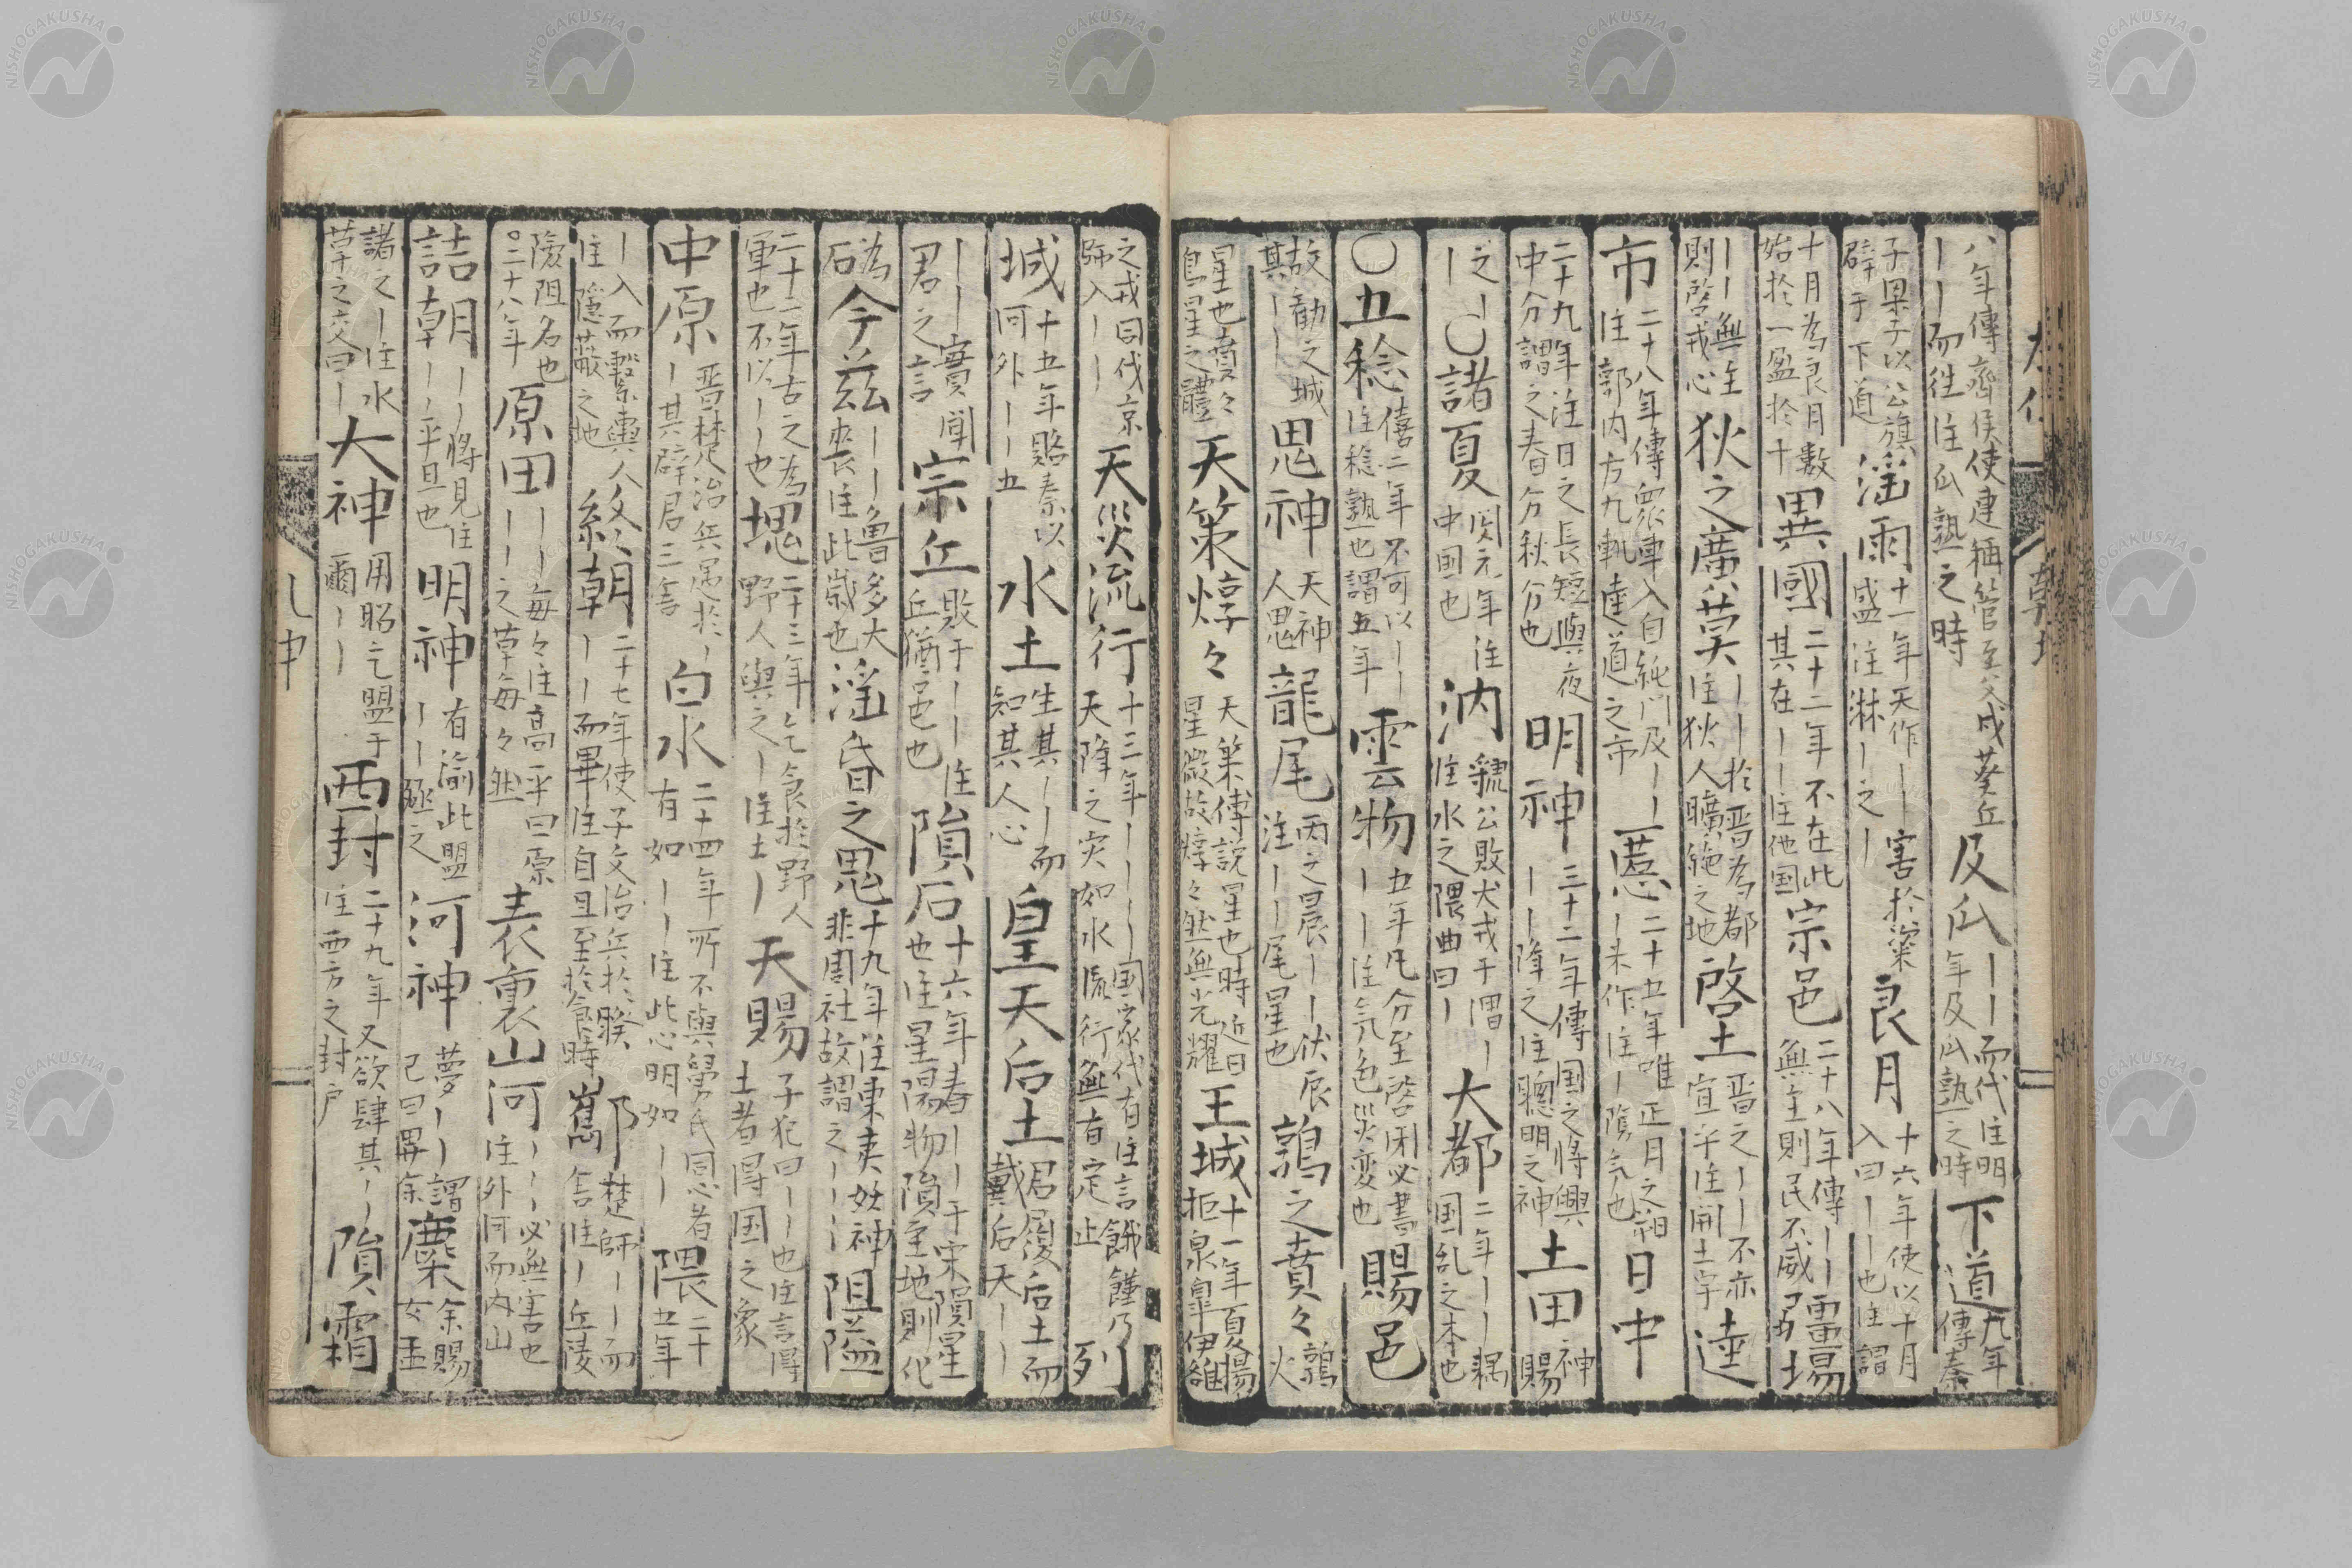 八年傳齊侯使連稱管至父戍葵丘
｜｜而徃注瓜熟之時
及瓜
｜｜而代注明
年及瓜熟之時
下道
九年
傳秦
子梁子以公旗
辟于下道
淫雨
十一年天作｜｜害於粢
盛注淋｜之｜
良月
十六年使以十月
入曰｜｜也注謂
十月為良月數
始於一盈於十
異國
二十二年不在此
其在｜｜注他国
宗邑
二十八年傳｜｜
無主則民不威
疆場
｜｜無主
則啓戎心
狄之廣莫
｜｜｜｜於晋為都
注狄人曠絶之地
啓土
晋之｜｜不亦
宜乎注開土宇
逵
市
二十八年傳眾車入自純門及｜｜
注郭内方九軌逵道之市
慝
二十五年唯正月之朔
｜未作注｜陰气也
日中
二十九年注日之長短與夜
中分謂之春分秋分也
明神
三十二年傳国之将興
｜｜降之注聰明之神
土田
神
賜
之｜
｜
〇諸夏
閔元年注
中国也
汭
虢公敗犬戎于渭｜
注水之隈曲曰｜
大都
二年｜｜耦
国乱之本也
〇五稔
僖二年不可以｜｜
注稔熟也謂五年
雲物
五年凡分至啓閉必書
｜｜注気色災変也
賜邑
故勸之城
其｜｜
鬼神
天神
人鬼
龍尾
丙之晨｜｜伏辰
注｜｜尾星也
鶉之賁々
鶉
火
星也賁々
鳥星之體
天策焞々
天策傅説星也時近日
星微故焞々然無光耀
王城
十一年夏揚
拒泉皐伊雒
之戎曰伐京
弥入｜｜
天災流行
十三年｜｜｜｜国家代有注言餓饉乃
天降之災如水流行無有定止
列
城
十五年賂秦以
河外｜｜五
水土
生其｜｜而
知其人心
皇天后土
君履后土而
戴后天｜｜
｜｜實聞
君之言
宗丘
敗于｜｜注
丘猶邑也
隕石
十六年春｜｜于宋隕星
也注星隕物隕至地則化
為
石
今兹
｜｜魯多大
喪注此歳也
淫昏之鬼
十九年注東夷妖神
非周社故謂之｜｜｜｜
阻隘
二十二年古之為
軍也不以｜｜也
塊
二十三年乞食於野人
野人與之｜注土｜
天賜
子犯曰｜｜也注言得
土者得国之象
中原
晋楚治兵遇於｜
｜其辟君三舎
白水
二十四年所不與舅氏同心者
有如｜｜注此心明如｜｜
隈
二十
五年
｜入而繋輿人
注隱蔽之地
終朝
二十七年使子文治兵於睽
｜｜而畢注自旦至於食時
酅
楚師｜｜而
舎注｜丘陵
險阻名也
〇二十八年
原田
｜｜毎々注高平曰原
｜｜之草毎々然
表裏山河
｜｜｜｜必無害也
注外河而内山
詰朝
｜｜将見注
｜｜平旦也
明神
有渝此盟
｜｜殛之
河神
夢｜｜謂
己曰畀余
麋
余賜
女孟
諸之｜注水
草之交曰｜
大神
用昭乞盟于
爾｜｜
西封
二十九年又欲肆其｜｜
注西方之封户
隕霜